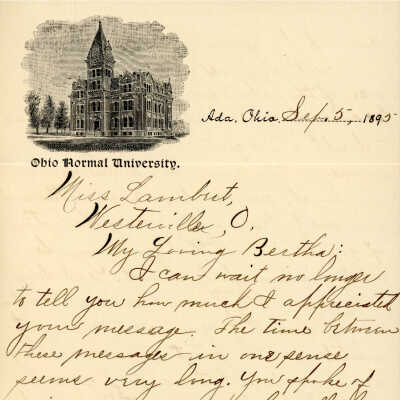 Ada, Ohio, Sep. 5, 1895
Ohio Normal University.
Miss Lambert,
Westerville, O.
My Loving Bertha:
I can wait no longer
to tell you how much I appreciated
your message. The time between
these messages in one sense
seems very long. You spoke of